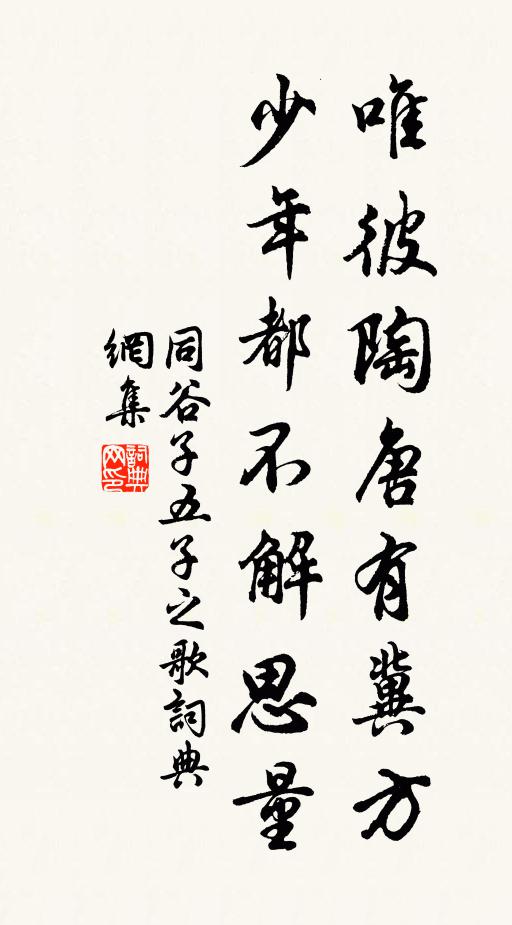 唯彼陶唐有冀方
少年都不解思量
同谷子五子之歌詞典
網集
詞典
网印